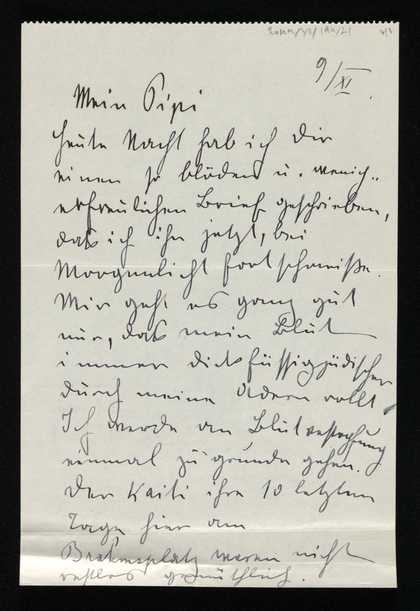 9/XI.
Mein Pipi
Heute Nacht hab ich dir
einen so blöden u. wenich..
erfreulichen Brief geschrieben,
daß ich ihn jetzt, bei
Morgenlicht fortschmeiße.
Mir geht es ganz gut
nur, daß mein Blut
immer dickflüssigjüdischer
durch meine Adern rollt
Ich werde an Blut
einmal zu grunde gehen.
Der Kaiti ihre 10 letzten
Tage hier am
Brahmsplatz waren nicht
restlos gemütlich.